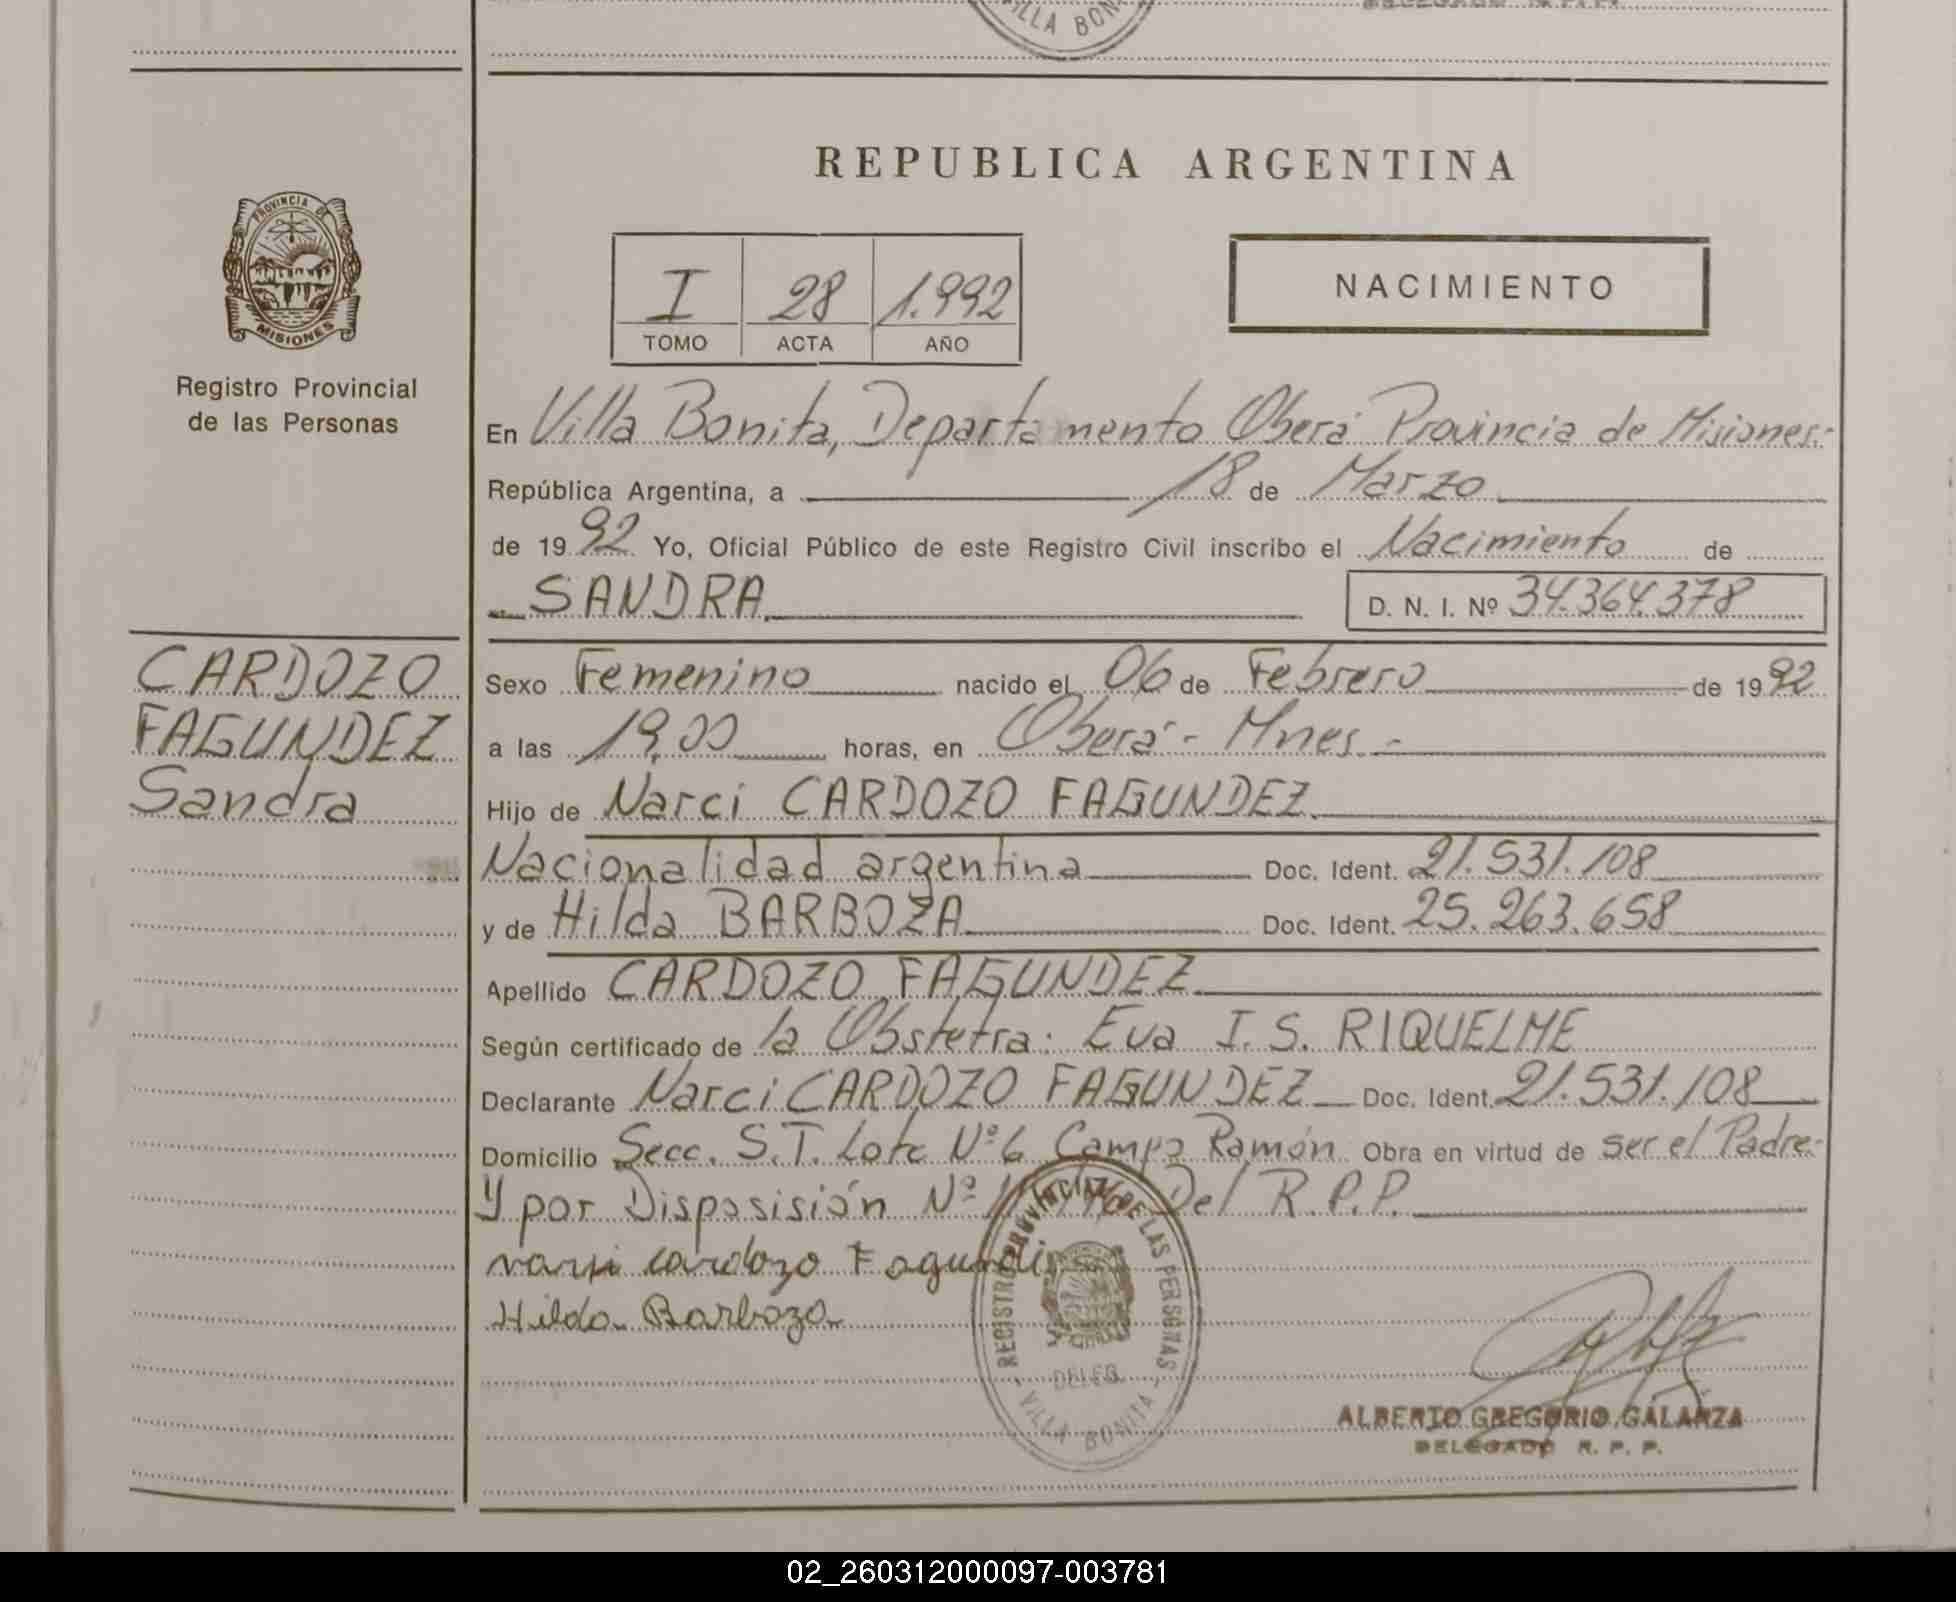 VILLA BONI
REPUBLICA ARGENTINA
PROVINCIA DE
MISIONES
Registro Provincial
de las Personas
I 28 1.992
TOMO ACTA AÑO
NACIMIENTO
En Villa Bonita, Departamento Oberá Provincia de Misiones.-
República Argentina, a 18 de Marzo
de 1992 Yo, Oficial Público de este Registro Civil inscribo el Nacimiento de
SANDRA D. N. I. Nº 34.364.378
CARDOZO
FAGUNDEZ
Sandra
Sexo Femenino nacido el 06 de Febrero de 1992
a las 19,00 horas, en Oberá - Mnes.-
Hijo de Narci CARDOZO FAGUNDEZ
Nacionalidad argentina Doc. Ident. 21.531.108
y de Hilda BARBOZA Doc. Ident. 25.263.658
Apellido CARDOZO FAGUNDEZ
Según certificado de la Obstetra: Eva I. S. RIQUELME
Declarante Narci CARDOZO FAGUNDEZ Doc. Ident. 21.531.108
Domicilio Secc. S.T. Lote Nº 6 Campo Ramón Obra en virtud de ser el Padre.-
Y por Disposisión Nº Del R.P.P.
cardozo
Hilda Barboza
REGISTRO PROVINCIAL DE LAS PERSONAS
DELEG.
- VILLA BONITA -
ALBERTO GREGORIO GALARZA
DELEGADO R. P. P.
02_260312000097-003781